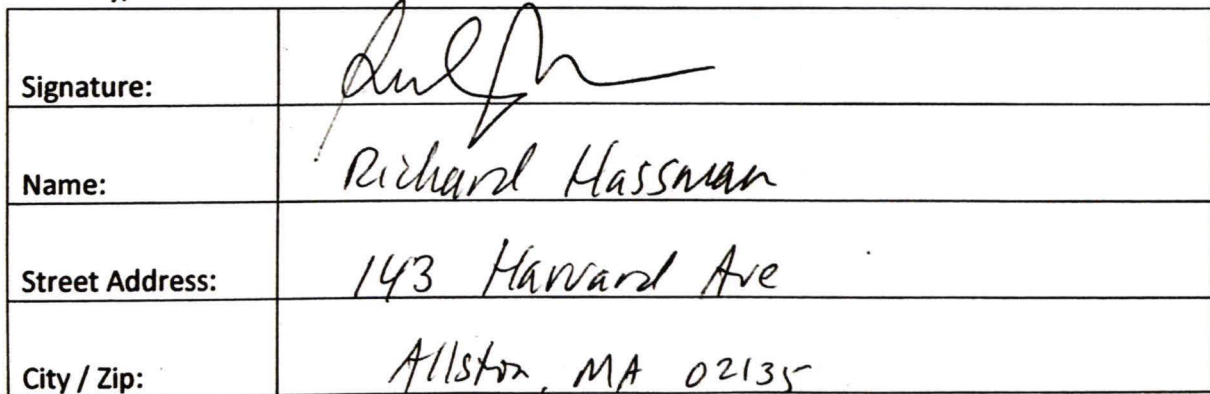 Signature:
Name: Richard Hassman
Street Address: 143 Harvard Ave
City / Zip: Allston, MA 02135